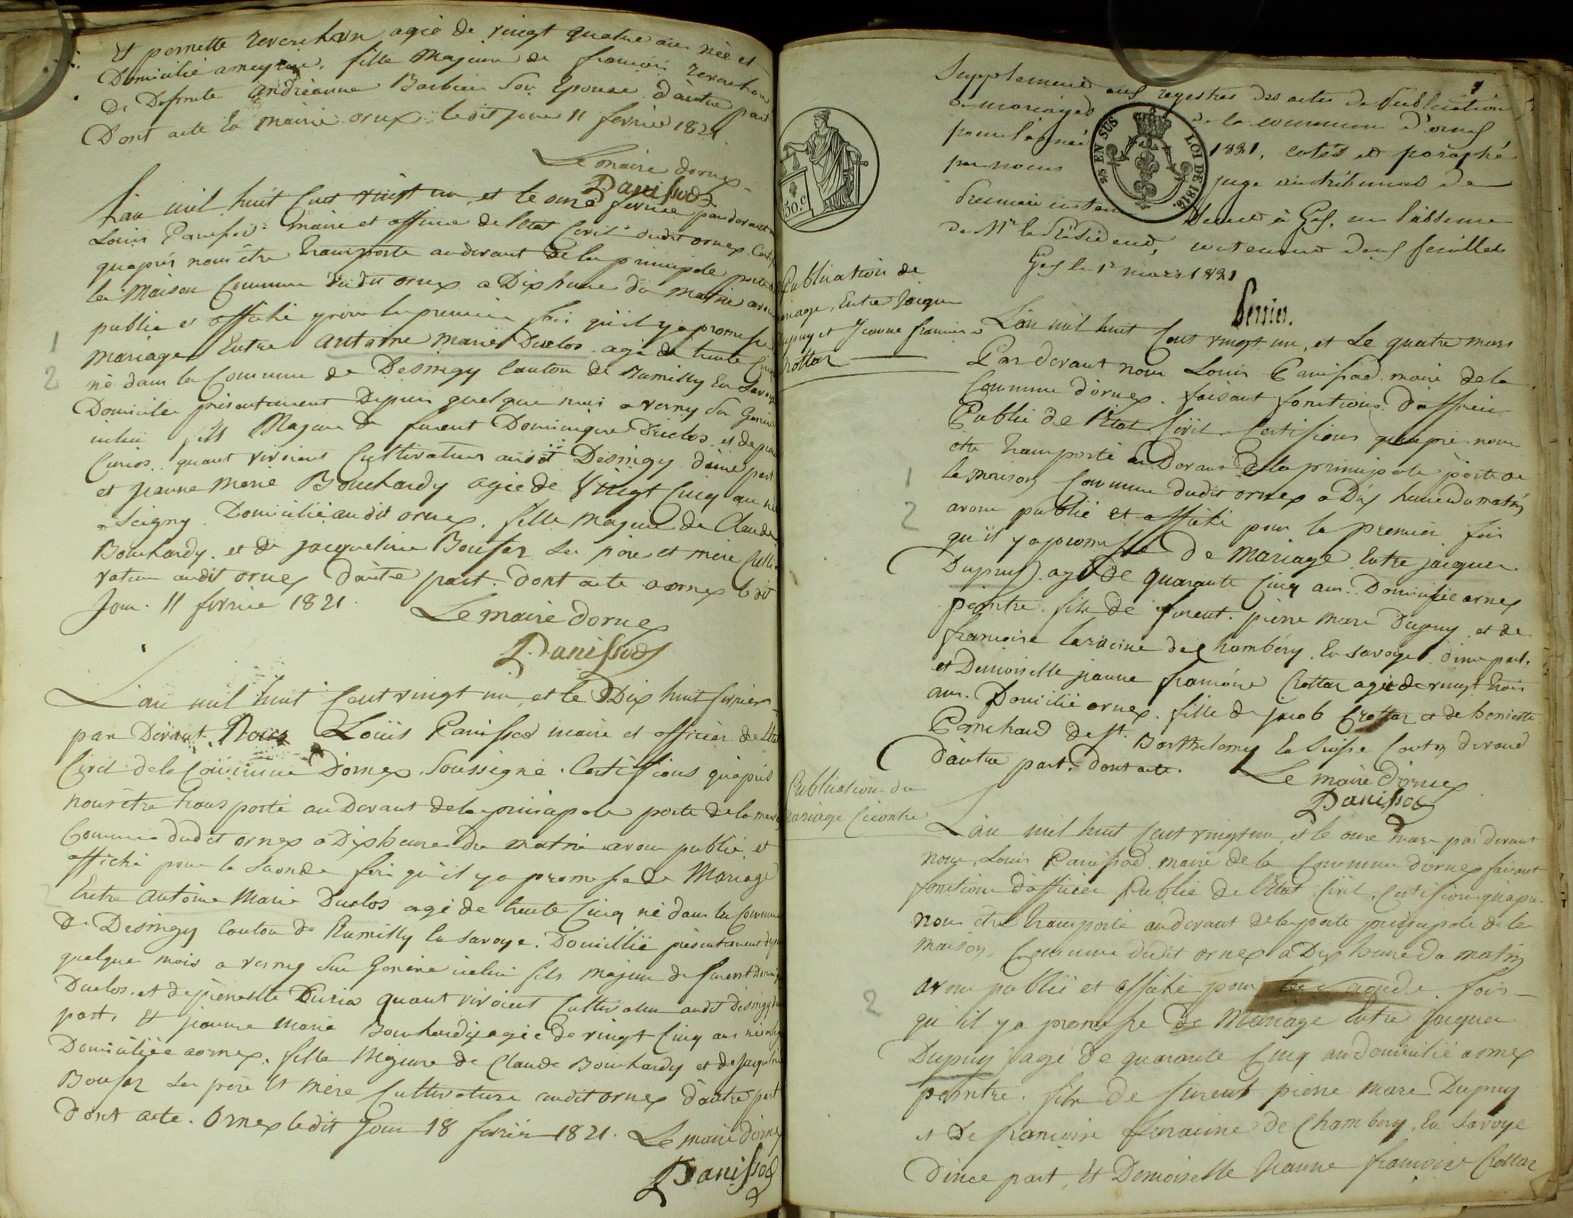 Et pernette Reverchon agée de vingt quatre ans née et
Domicilié a , fille Majeure de francois Reverchon
De Defunte andréanne Barbier Son Epouse d'autre part
Dont acte En mairie ornex ledit Jour 11 fevrier 1821
Le maire dornex
Panissod
L'an mil huit Cent vingt un et le onze fevrier par devant
Louis Panissod maire et officier de l'Etat Civil dudit ornex Certif
qu'après nous être transporté audevant de la principale porte
la Maison Commune dudit ornex a Dix heure du matin avon
publié et affiché pour la premiere fois qu'il y a promesse
mariage Entre antoine marie Duclos agé de trente Cinq
né dans la Commune de Desingy Canton de Rumilly En Savoye
Domicilie présentement Depuis quelque mois a verny Sur Geneve
icelui fils Majeur de furent Dominique Duclos et de
Curios quant vivoient Cultivateur audit Desingy d'une part
et jeanne Marie Bouchardy agée de Vingt Cinq an né
a Seigny Domicilié audit ornex fille majeure de Claude
Bouchardy et de jacqueline Boufer Ses père et mère Culti
vateur audit ornex d'autre part. Dont acte a ornex le dit
Jour 11 fevrier 1821.
Le maire dornex
Panissod
L'an mil huit Cent vingt un et le Dix huit fevrier
par Devant Nous Louis Panissod maire et officier de l'Etat
Civil de la Commune Dornex Soussigné Certifions qu'après
nous être transporté au Devant de la principale porte de la
Commune dudit ornex a Dix heure Du matin avon publié et
affiché pour la Seconde fois qu'il y a promesse de Mariage
Entre antoine Marie Duclos agé de trente Cinq né dans la Commune
De Desingy Canton de Rumilly En Savoye. Domicilié présentement
quelque mois a verny Sur Geneve icelui fils majeur de furent
Duclos et de pernette Curio quant vivoient Cultivateur audit Desingy
part, Et jeanne Marie Bouchardy agée de vingt Cinq ans née
Domiciliée aornex, fille Majeure de Claude Bouchardy et de
Boufer Ses père Et Mère Cultivateur audit ornex D'autre part
Dont acte. Ornex ledit Jour 18 fevrier 1821. Le maire dornex
Panissod
1
2
30. c
25 EN SUS
LOI DE 1816
Supplement aux registres des actes de Publication
de mariages de la commune d'ornex
pour l'année 1821, cotés et paraphé
par nous juge au tribunal de
Premiere instance Séant à Gex, en l'absence
de Mr le Président, contenant deux feuilles
Gex le 1er mars 1821
Perrier.
Publication de
mariage, Entre Jacques
Dupuy et Jeanne francoise
Crottaz
L'an mil huit Cent vingt un, et Le quatre mars
Par devant nous Louis Panissod maire de la
Commune dornex faisant fonctions d'officier
Public de l'Etat Civil Certifions qu'aprè nous
etre transporté au Devant de la principale porte de
la maison Commune dudit ornex a Dix heure du matin
avons publié et affiché pour la premier fois
qu'il y a promesse de Mariage Entre jacques
Dupuy) agé de quarante Cinq ans Domicilié ornex
peintre fils de furent pierre Marc Dupuy et de
francoise de Chambéry En savoye d'une part,
et Demoiselle jeanne francoise Crottaz agée de vingt trois
ans Domicilié ornex fille de jacob Crottaz et de henriette
Panchaud de St. Barthelemy En Suisse Canton devaud
d'autre part. Dont acte.
Le maire dornex
Panissod
1
2
Publication du
mariage Cicontre
L'an mil huit Cent vingt un, et le onze mars par devant
nous Louis Panissod maire de la Commune dornex faisant
fonctions d'officier Public de l'Etat Civil, Certifions qu'aprè
nous être transporté audevant de la porte principale de la
maison Commune dudit ornex a Dix heure Du matin
avons publié et affiché pour la Seconde fois
qu'il y a promesse de Mariage Entre Jacques
Dupuy agé de quarante Cinq an domicilié aornex
peintre fils de furent pierre marc Dupuy
et De francoise de Chambery En Savoye
D'une part, Et Demoiselle Jeanne francoise Crottaz
2